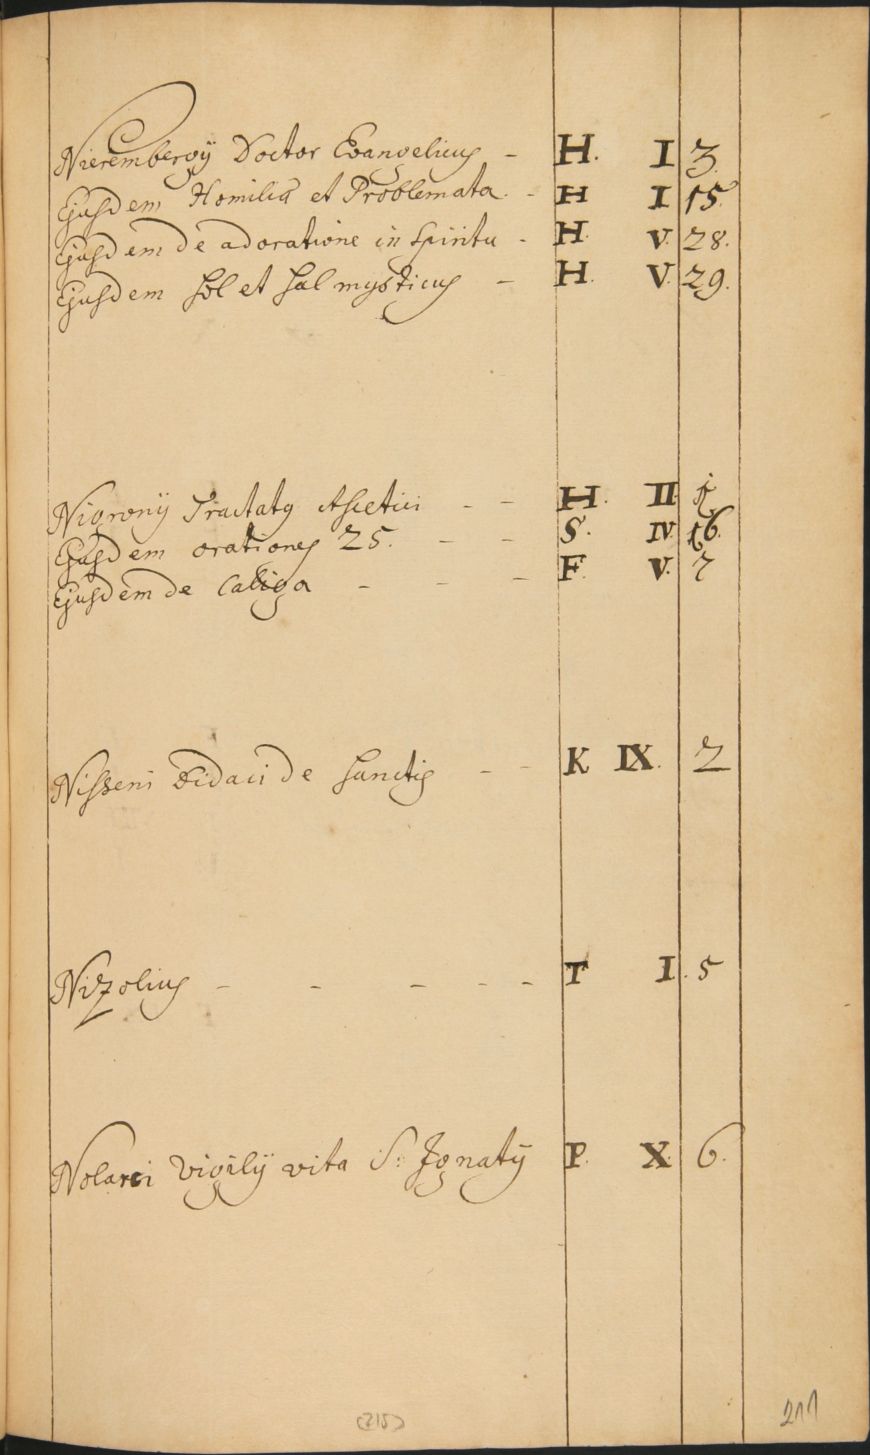 Nierembergij Doctor Evangelicus - H. I 3.
Ejusdem Homiliæ et Problemata. - H I 15.
Ejusdem de adoratione in Spiritu - H. V. 28.
Ejusdem Sol et Sal mysticus - H. V. 29.
Nigronij Tractatus Ascetici - - H. II 1
Ejusdem orationes 25. - - S. IV. 16.
Ejusdem de Caliga - - - F. V. 7
Nisseni Didaci de Sanctis - - K IX. 2
Nizolius - - - - - T I. 5
Nolarci Vigilij vita S: Ignatij P. X. 6.
(215)
211